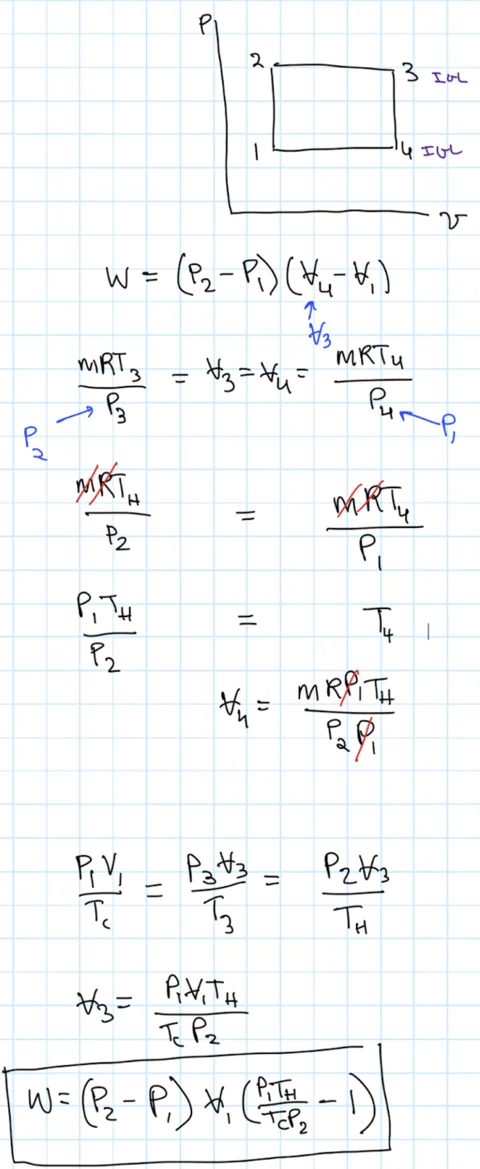 P
2 3 IGL
1 4 IGL
V
W = (P₂ - P₁)(V₄ - V₁)
V₃
mRT₃/P₃ = V₃ = V₄ = mRT₄/P₄
P₂ P₁
mRT_H/P₂ = mRT₄/P₁
P₁T_H/P₂ = T₄
V₄ = mRP₁T_H/P₂P₁
P₁V₁/T_c = P₃V₃/T₃ = P₂V₃/T_H
V₃ = P₁V₁T_H/T_cP₂
W = (P₂ - P₁) V₁ (P₁T_H/T_cP₂ - 1)